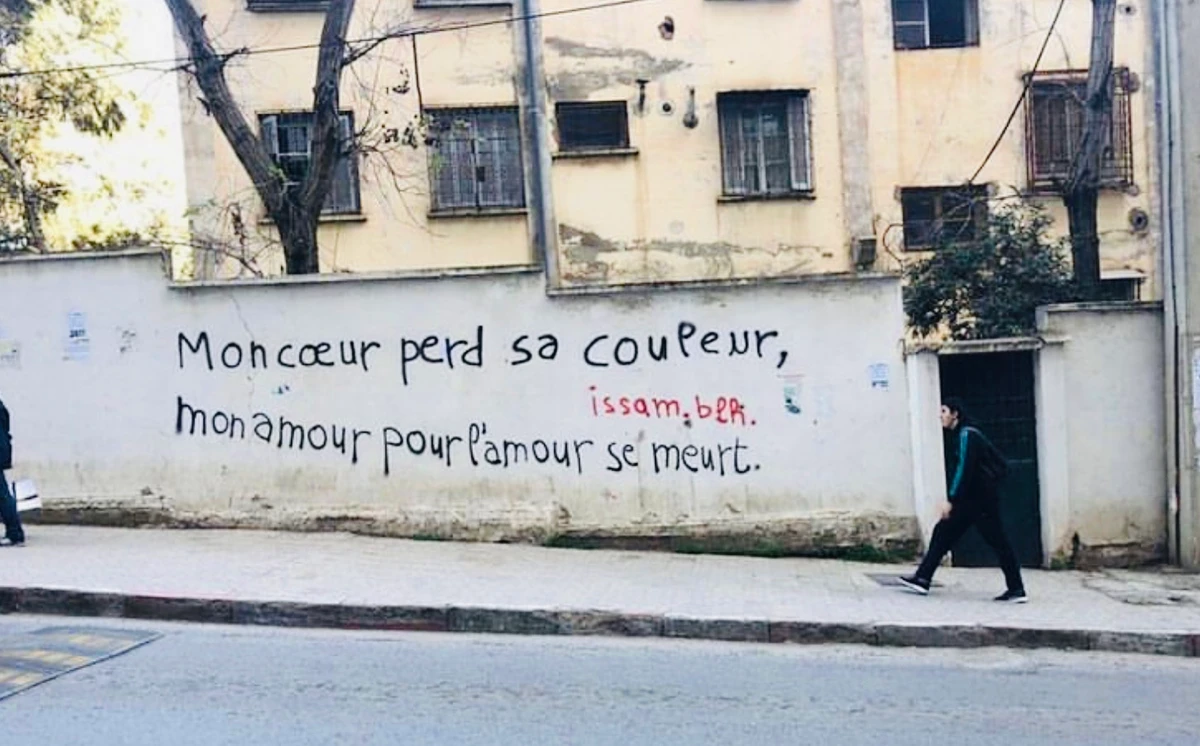 Mon cœur perd sa couleur,
issam.blk.
mon amour pour l'amour se meurt.